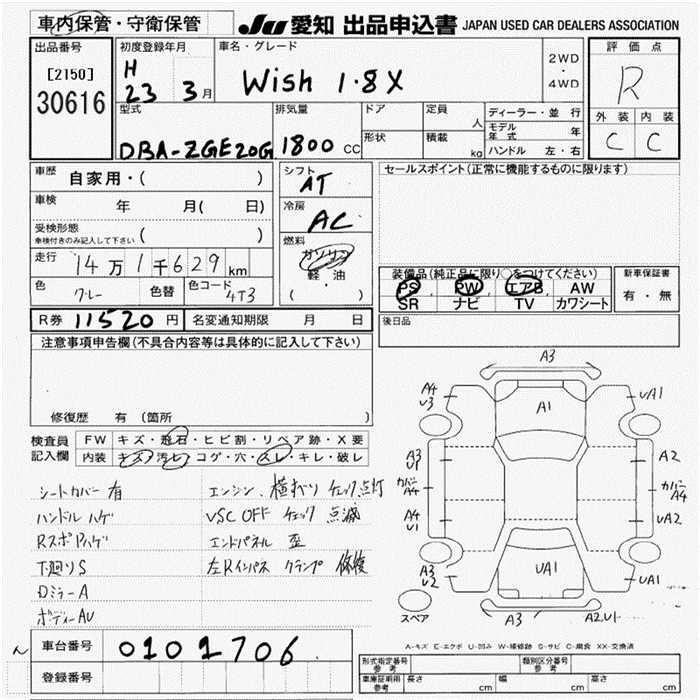 車内保管・守衛保管
JU 愛知 出品申込書 JAPAN USED CAR DEALERS ASSOCIATION
出品番号
[2150]
30616
初度登録年月
H
23 3月
車名・グレード
Wish 1.8X
2WD
・
4WD
評価点
R
外装 内装
C C
型式
DBA-ZGE20G
排気量
1800 CC
ドア
形状
定員 人
積載 kg
ディーラー・並行
モデル年式 年
ハンドル 左・右
車歴 自家用・( )
車検 年 月( 日)
受検形態
車検付きのみ記入して下さい ( )
走行 14万1千629km
色 グレー 色替 色コード 4T3
シフト
AT
冷房
AC
燃料
ガソリン
軽・油
( )
セールスポイント(正常に機能するものに限ります)
装備品(純正品に限り○をつけてください)
PS PW エアB AW
SR ナビ TV カワシート
新車保証書
有・無
後日品
R券 11520円 名変通知期限 月 日
注意事項申告欄(不具合内容等は具体的に記入して下さい)
修復歴 有 (箇所
検査員
記入欄
FW キズ・飛石・ヒビ割・リペア跡・X要
内装 キズ・汚レ・コゲ・穴・スレ・キレ・破レ
シートカバー有
ハンドルハゲ
下廻りS
Dミラー A
ボディーAU
エンジン、横すべり チェック点灯
VSC OFF チェック 点滅
エンドパネル 歪
左Rインパネ クランプ 修復
A3
A4
U3
A1
UA1
A3
U1
A2
カバー
A4
カバー
A4
A4
U1
UA2
A3
U2
UA1
UA1
スペア
A3
A2U1
A-キズ E-エクボ U-凹み W-補修跡 S-サビ C-腐食 XX-交換済
車台番号 0101706
登録番号
形式指定番号
参考
類別区分番号
参考
車庫証明用
参考
長さ cm 幅 cm 高さ cm